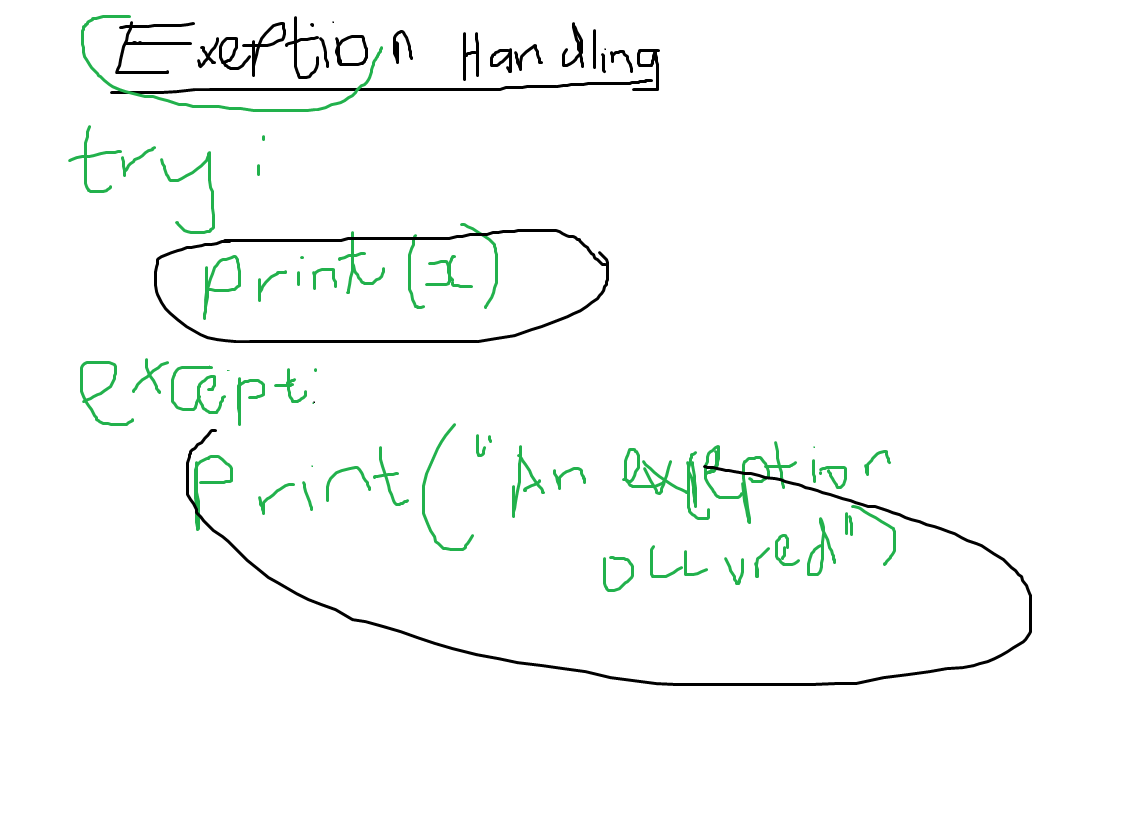 Exeption Handling
try:
print(x)
except:
Print("An exception
occured")